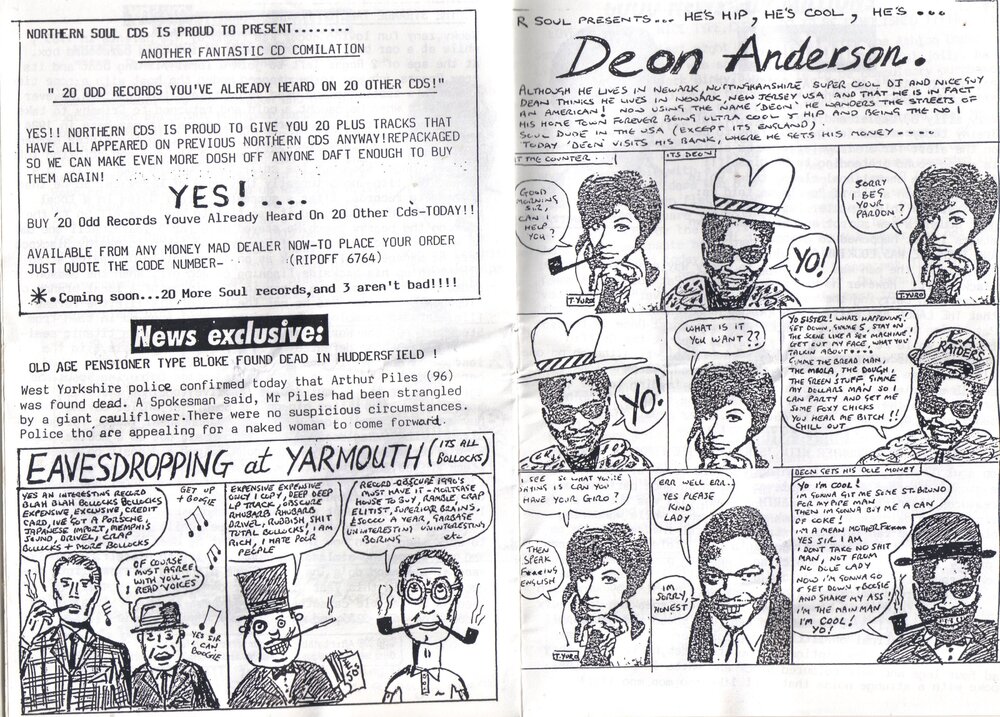 NORTHERN SOUL CDS IS PROUD TO PRESENT........
ANOTHER FANTASTIC CD COMILATION
" 20 ODD RECORDS YOU'VE ALREADY HEARD ON 20 OTHER CDS!"
YES!! NORTHERN CDS IS PROUD TO GIVE YOU 20 PLUS TRACKS THAT
HAVE ALL APPEARED ON PREVIOUS NORTHERN CDS ANYWAY!REPACKAGED
SO WE CAN MAKE EVEN MORE DOSH OFF ANYONE DAFT ENOUGH TO BUY
THEM AGAIN!
YES!....
BUY '20 Odd Records Youve Already Heard On 20 Other Cds-TODAY!!
AVAILABLE FROM ANY MONEY MAD DEALER NOW-TO PLACE YOUR ORDER
JUST QUOTE THE CODE NUMBER- (RIPOFF 6764)
*.Coming soon...20 More Soul records,and 3 aren't bad!!!!
News exclusive:
OLD AGE PENSIONER TYPE BLOKE FOUND DEAD IN HUDDERSFIELD !
West Yorkshire police confirmed today that Arthur Piles (96)
was found dead. A Spokesman said, Mr Piles had been strangled
by a giant cauliflower.There were no suspicious circumstances.
Police tho' are appealing for a naked woman to come forward.
EAVESDROPPING at YARMOUTH (ITS ALL
BOLLOCKS)
YES AN INTERESTING RECORD
BLAH BLAH BOLLOCKS BOLLOCKS
EXPENSIVE, EXCLUSIVE, CREDIT
CARD, IVE GOT A PORSCHE,
JAPANESE IMPORT, MEMPHIS
SOUND, DRIVEL, CRAP
BOLLOCKS + MORE BOLLOCKS
GET UP
+ BOOGIE
OF COURSE
I MUST AGREE
WITH YOU -
I READ 'VOICES'
YES SIR
I CAN
BOOGIE
EXPENSIVE EXPENSIVE
ONLY 1 COPY, DEEP DEEP
LP TRACK, OBSCURE
RHUBARB RHUBARB
DRIVEL, RUBBISH, SHIT
TOTAL BOLLOCKS, I AM
RICH, I HATE POOR
PEOPLE
RECORD-OBSCURE 1990'S
MUST HAVE IT - MORTGAGE
HOUSE TO BUY, RAMBLE, CRAP
ELITIST, SUPERIOR BRAINS,
A YEAR, GARBAGE
UNINTERESTING UNINTERESTING
BORING etc
R SOUL PRESENTS... HE'S HIP, HE'S COOL, HE'S ...
Deon Anderson.
ALTHOUGH HE LIVES IN NEWARK, NOTTINGHAMSHIRE SUPER COOL DJ AND NICE GUY
DEAN THINKS HE LIVES IN NEWARK, NEW JERSEY USA AND THAT HE IS IN FACT
AN AMERICAN! NOW USING THE NAME 'DEON' HE WANDERS THE STREETS OF
HIS HOME TOWN FOREVER BEING ULTRA COOL & HIP AND BEING THE NO 1
SOUL DUDE IN THE USA (EXCEPT ITS ENGLAND).
TODAY 'DEON' VISITS HIS BANK, WHERE HE GETS HIS MONEY....
AT THE COUNTER...
GOOD
MORNING
SIR,
CAN I
HELP
YOU?
T.YURO
ITS DEON!
YO!
SORRY
I BEG
YOUR
PARDON?
T.YURO
YO!
WHAT IS IT
YOU WANT??
YO SISTER! WHATS HAPPENING!
GET DOWN, GIMME 5, STAY ON
THE SCENE LIKE A SEX MACHINE!
GET OUT MY FACE, WHAT YOU
TALKIN ABOUT....
GIMME THE BREAD MAN,
THE MOOLA, THE DOUGH,
THE GREEN STUFF, GIMME
MY DOLLARS MAN SO I
CAN PARTY AND GET ME
SOME FOXY CHICKS
YOU HEAR ME BITCH!!
CHILL OUT
L.A.
RAIDERS
I SEE SO WHAT YOU'RE
SAYING IS CAN YOU
HAVE YOUR GIRO?
THEN
SPEAK
F**KING
ENGLISH
T.YURO
ERR WELL ERR..
YES PLEASE
KIND
LADY
IM
SORRY,
HONEST
DEON GETS HIS DOLE MONEY
YO I'M COOL!
IM GONNA GIT ME SOME ST. BRUNO
FOR MY PIPE MAN
THEN IM GONNA BUY ME A CAN
OF COKE!
I'M A MEAN
YES SIR I AM
I DONT TAKE NO SHIT
MAN, NOT FROM
NO DOLE LADY
NOW I'M GONNA GO
& GET DOWN + BOOGIE
AND SHAKE MY ASS!
I'M THE MAIN MAN
I'M COOL!
YO!